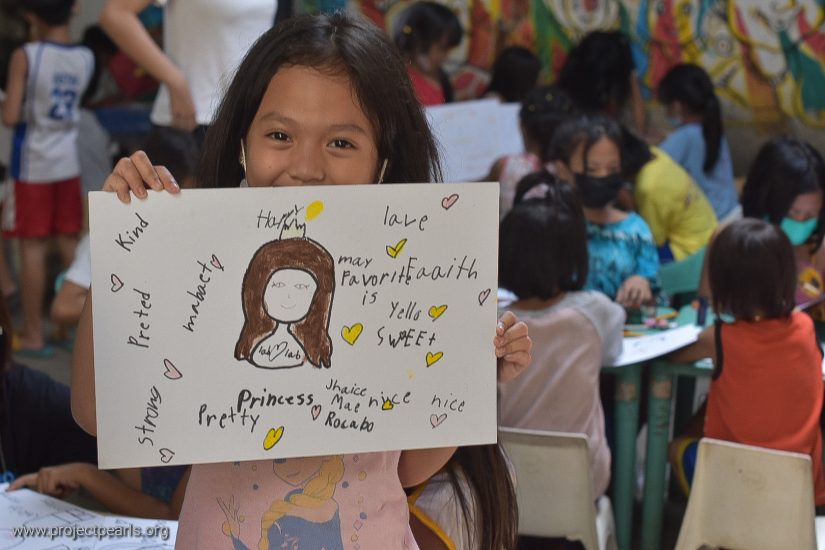 Happy
love
Kind
may
Favorite
is
Faaith
mabact
Yello
SWEEt
Preted
lab lab
strong
Princess
Jhaice
Mae
Rocabo
Pretty
nice
nice
23
www.projectpearls.org